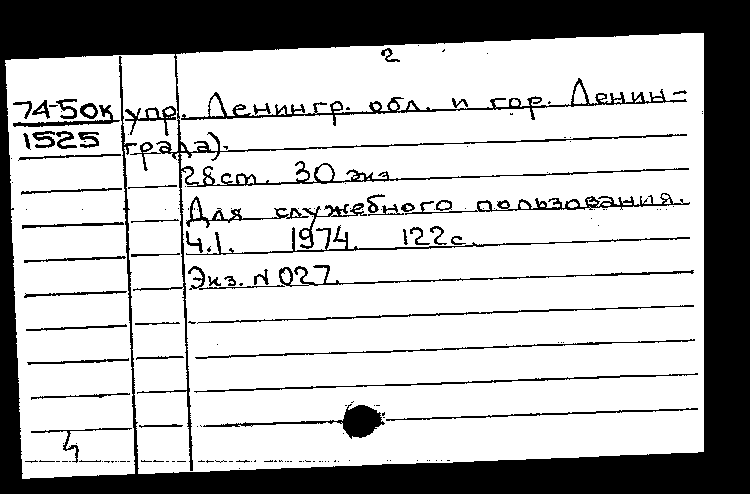 2
74-50к упр. Ленингр. обл. и гор. Ленин=
1525 града).
28см. 30 экз.
Для служебного пользования.
Ч.1. 1974. 122с.
Экз. N 027.
4